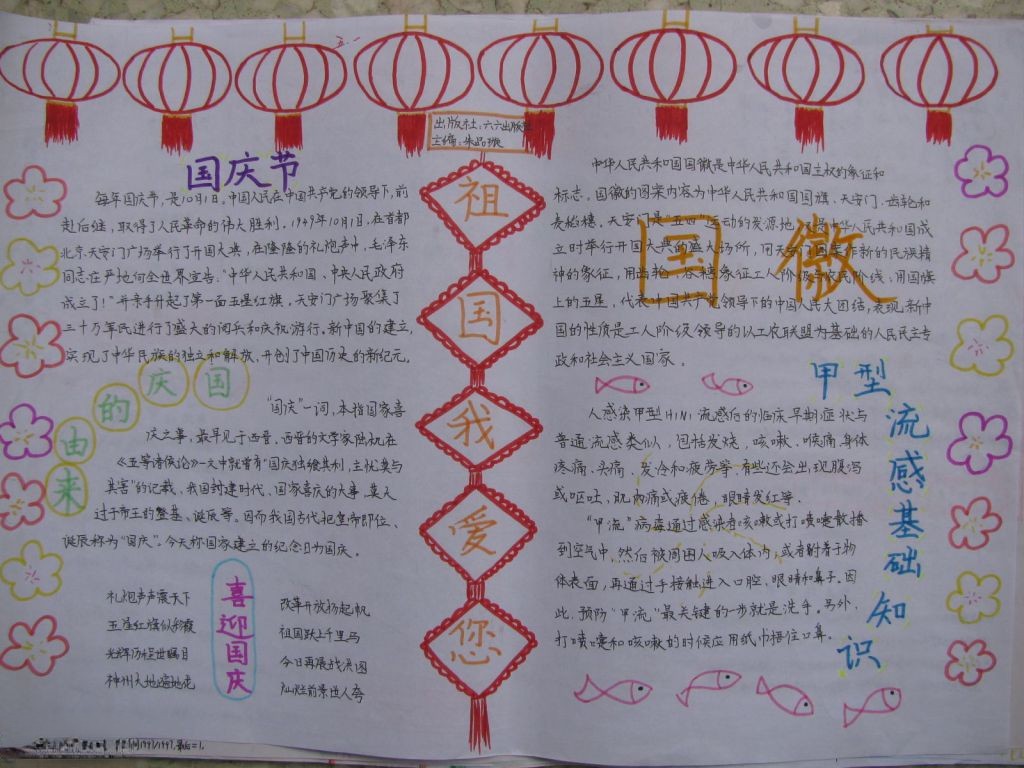 五.一
出版社:六六出版社
主编:朱品璇
国庆节
每年国庆节,是10月1日。中国人民在中国共产党的领导下,前
赴后继,取得了人民革命的伟大胜利。1949年10月1日,在首都
北京天安门广场举行了开国大典,在隆隆的礼炮声中,毛泽东
同志在严地向全世界宣告:“中华人民共和国,中央人民政府
成立了!”并亲手升起了第一面五星红旗。天安门广场聚集了
三十万军民进行了盛大的阅兵和庆祝游行。新中国的建立,
实现了中华民族的独立和解放,开创了中国历史的新纪元。
国庆的由来
“国庆”一词,本指国家喜
庆之事,最早见于西晋。西晋的文学家陆机在
《五等诸侯论》一文中就曾有“国庆独飨其利,主忧莫与
其害”的记载、我国封建时代、国家喜庆的大事,莫大
过于帝王的登基、诞辰等。因而我国古代把皇帝即位、
诞辰称为“国庆”。今天称国家建立的纪念日为国庆。
喜迎国庆
礼炮声声震天下
五星红旗似彩霞
光辉历程世瞩目
神州大地遍地花
改革开放扬起帆
祖国跃上千里马
今日再展战洪图
灿烂前景世人夸
祖
国
我
爱
您
国徽
中华人民共和国国徽是中华人民共和国主权的象征和
标志。国徽的图案内容为中华人民共和国国旗、天安门、齿轮和
麦稻穗、天安门是“五四”运动的发源地,又是中华人民共和国成
立时举行开国大典的盛大场所,用天安门图案作新的民族精
神的象征,用齿轮、谷穗象征工人阶级与农民阶级,用国旗
上的五星,代表中国共产党领导下的中国人民大团结,表现新中
国的性质是工人阶级领导的以工农联盟为基础的人民民主专
政和社会主义国家。
甲型流感基础知识
人感染甲型H1N1流感后的临床早期症状与
普通流感类似,包括发烧、咳嗽、喉痛、身体
疼痛、头痛、发冷和疲劳等,有些还会出现腹泻
或呕吐、肌肉痛或疲倦、眼睛发红等。
“甲流”病毒通过感染者咳嗽或打喷嚏散播
到空气中,然后被周围人吸入体内;或者附着于物
体表面,再通过手接触进入口腔、眼睛和鼻子。因
此,预防“甲流”最关键的一步就是洗手。另外,
打喷嚏和咳嗽的时候应用纸巾捂住口鼻。